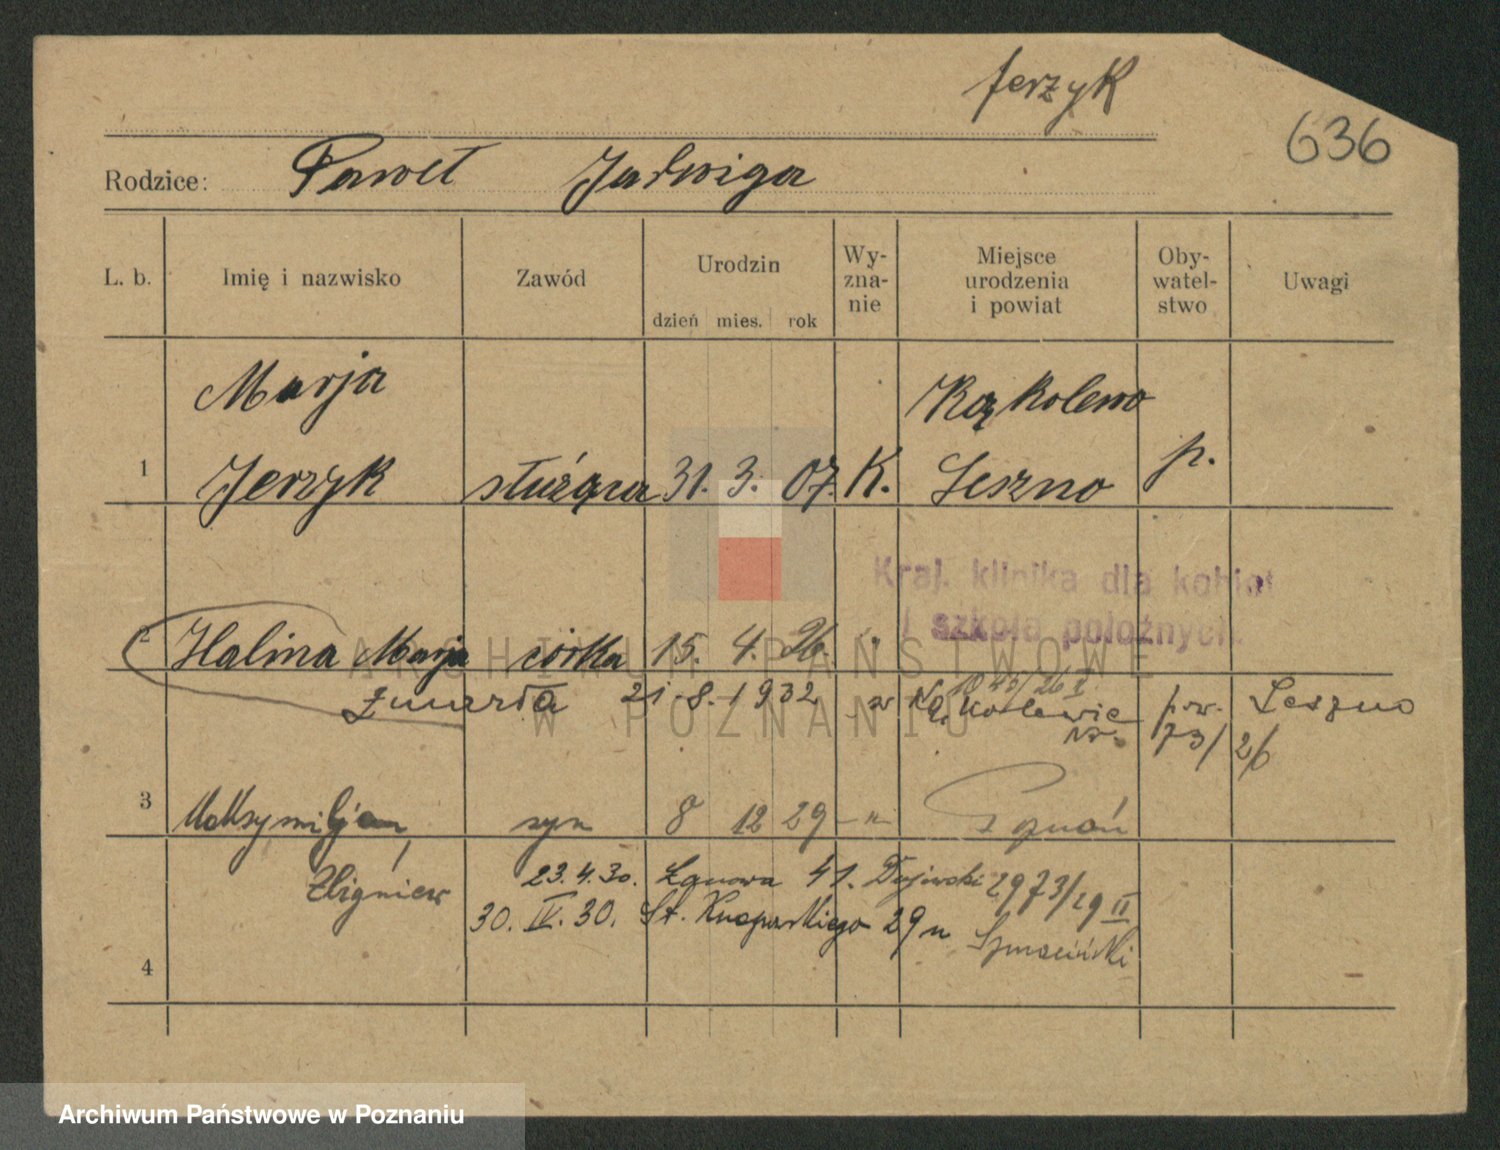 Jerzyk
636
Rodzice: Paweł Jadwiga
L. b. Imię i nazwisko Zawód Urodzin dzień mies. rok Wy- zna- nie Miejsce urodzenia i powiat Oby- watel- stwo Uwagi
Marja Kąkolewo
1 Jerzyk służąca 31. 3. 07. K. Leszno p.
Kraj. klinika dla kobiet
i szkoła położnych.
2 Halina Marja córka 15. 4. 26. "
ARCHIWUM PAŃSTWOWE
W POZNANIU
1043/26 I
zmarła 21.8.1932 w pow. Leszno
Nr. 73/26
3 Maksymiljan, syn 8 12 29 -"- Poznań
Zbigniew 23.4.30. Łanowa 41. 2973/29 II
30. IV. 30. St. Knapowskiego 29
4
Archiwum Państwowe w Poznaniu